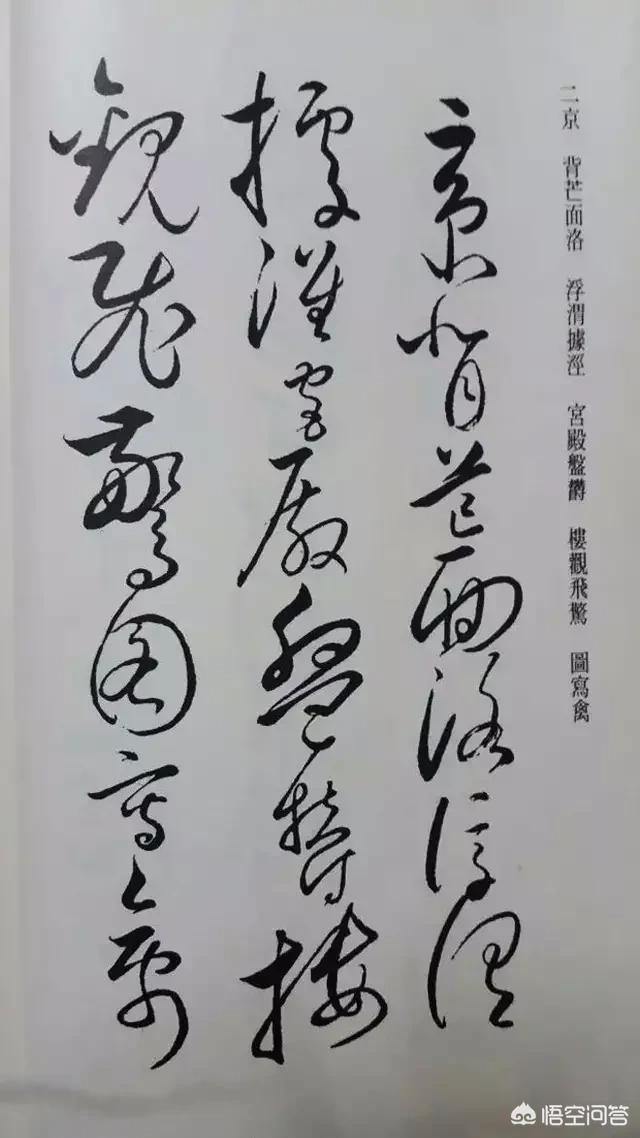 二京 背芒面洛 浮渭據涇 宮殿盤欝 樓觀飛驚 圖寫禽
京背芒面洛浮渭
據涇宮殿盤欝樓
觀飛驚圖寫禽
悟空问答